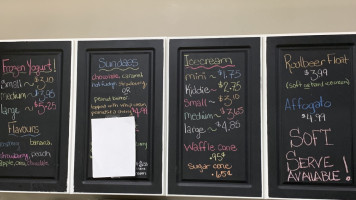 Frozen Yogurt!
Small ~ $2.10
Medium ~ $2.95
large ~ $5.25
Flavours
banana
strawberry, peach
Sundaes
chocolate, caramel
hot fudge, strawberry,
OR
peanut butter
topped with whip cream
Icecream
mini ~ $1.75
Kiddie ~ $2.75
Small ~ $3.10
Medium ~ $3.65
large ~ $4.85
Waffle cone
.95¢
Sugar cone
.65¢
Rootbeer Float
$3.99
(soft or hard icecream)
Affogato
$4.99
SOFT
SERVE
AVAILABLE!